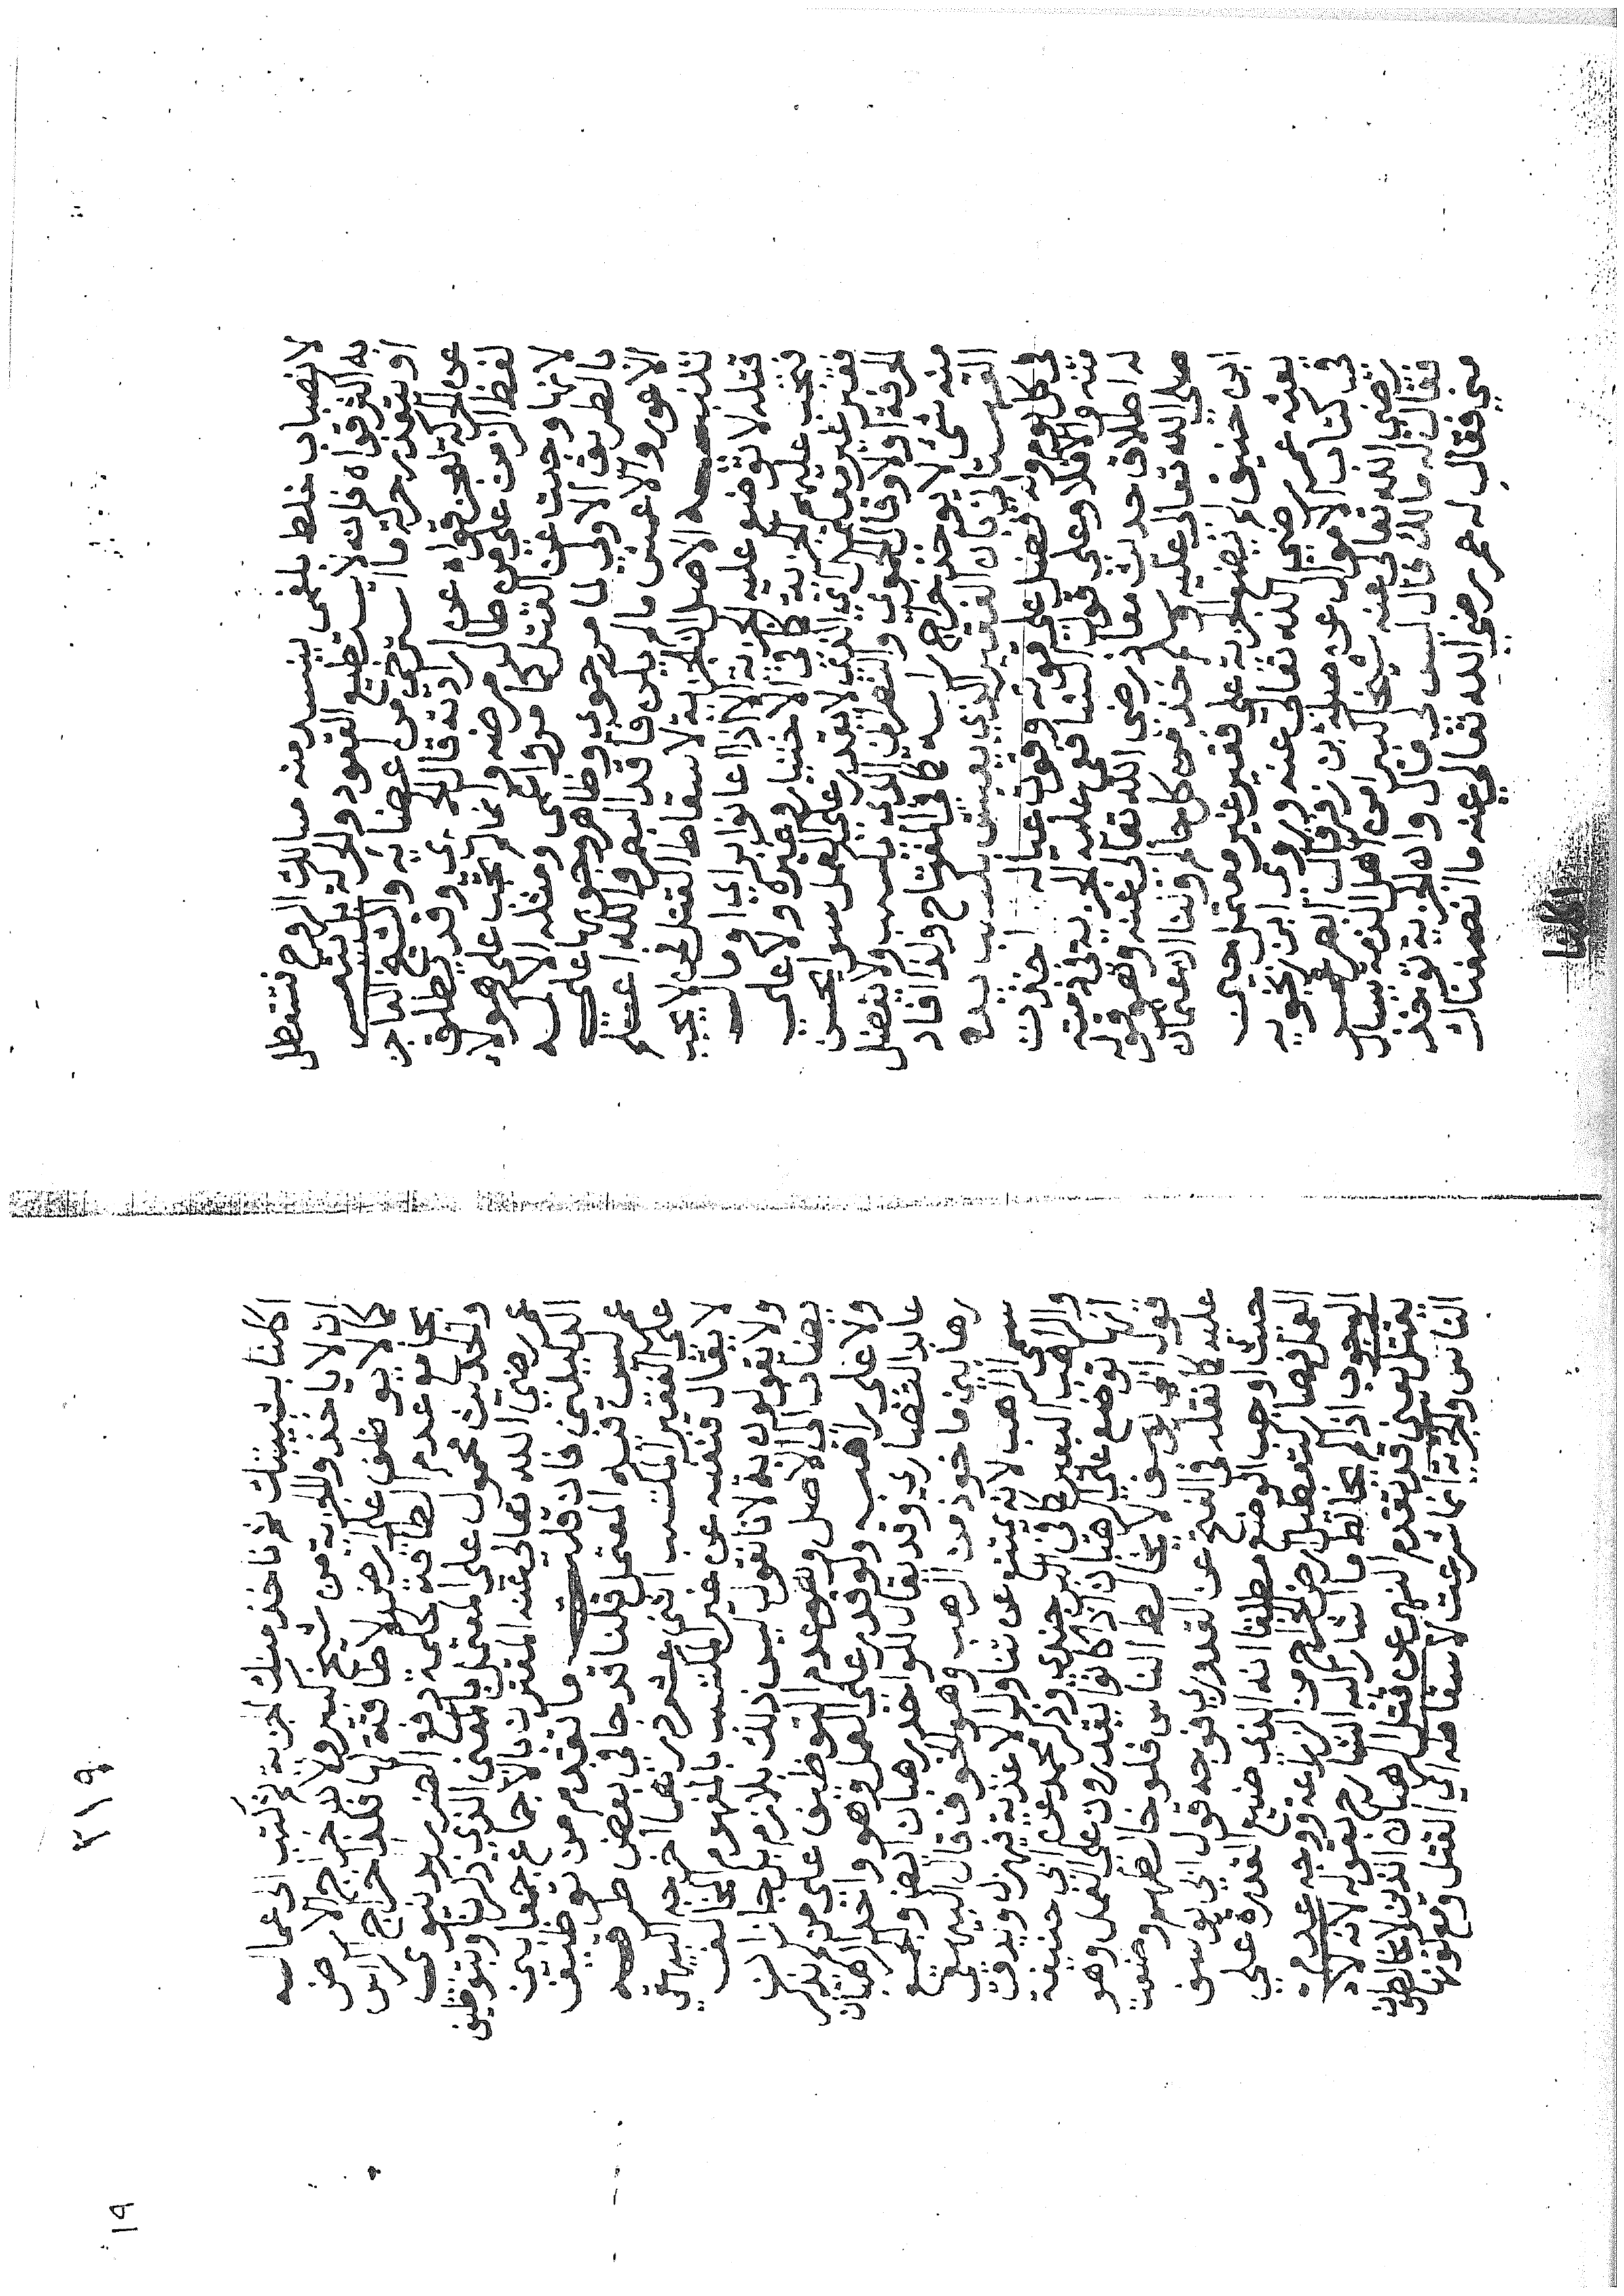 لانصباب خلط بلغمي ينسد منه مسالك الروح فتتعطل
به فانه لا يستطيع القعود والحركة بنفسه
او يتعذر حركة ما استرخي من اعضائه والشيخ العاجز
عن الحركة لعجز قواه عن ارادته قاله الحموي وقد يطلق
لفظ الزمن على من طال مرضه وانما لم تجب على هولاء
لانها وجبت عن القتل كما مر ومثله
بالطريق الاولى لما مر حموي وظاهر وجوبها على
الاعور والاعمش ما لم يكن فاقد البصر والله اعلم
تنبيه الاصل ان الجزية لاسقاط القتل فمن لا يجب
قتله لا توضع عليه الجزية الا اذا اعانوا براي او مال
فتجب عليهم الجزية كما في الاختيار وغيره ولا على
فقير غير معتمل اي الذي لا يقدر على العمل سوا يحسن
الحرفة او لا وقال الحموي الذي يكسب ولا يفضل
منه شي لا يوخذ خراج راسه كما في المفتاح ولذا افاد
القهستاني ان الفقير الذي يعيش بكسب يده
في كل يوم ولم يفضل على قوته وقوت عياله اخذت
منه والا فلا وعلى قول الشافعي عليه الجزية في ذمته
له اطلاق حديث معاذ رضي الله تعالى عنه وهو قوله
صلى الله تعالى عليه وسلم خذ من كل حالم ولنا ان عثمان
ابن حنيف لم يضع الجزية على فقير غير معتمل حين
بعثه عمر رضي الله تعالى عنه وروى ابن زنجويه
في كتاب الاموال عن صلة بن زفر قال ابصر عمر
رضي الله تعالى عنه شيخا كبيرا من اهل الذمة يسال
فقال له مالك قال ليس لي مال وان الجزية توخذ
مني فقال له عمر رضي الله تعالى عنه ما انصفناك
اكلنا
٢١٩
اكلنا شبيبتك ثم ناخذ منك الجزية ثم كتب الى عماله
ان لا ياخذوا الجزية من شيخ كبير ولان خراج الارض
كما لا يوظف على ارض لا طاقة لها فكذا خراج الراس
بجامع عدم الطاقة بحكمة دفع الضرر الدنيوي
والحديث محمول على المعتمل بالمعنى الذي ذكرنا وبتوظيف
عمر رضي الله تعالى عنه المقترن بالاجماع جمعا بين
الدليلين فان قلت ما تقدم من توظيف
عمر ليس فيه المعتمل قلنا قد جا في بعض طرقه
على الفقير المكتسب اثني عشر درهما اخرجه البيهقي
لا يقال فنفيه عن غير المكتسب بالمفهوم المخالف
ولا يقولون به لانا نقول ليس ذلك بلازم بل جاز ان
يضاف الى الاصل وهو عدم التوظيف على من لم يذكر
ولا على راهب ولو قدر على العمل وهو واحد الرهبان
عابد النصارى وقد يقال للواحد رهبان ايضا والجمع
رهابين ماخوذ من الرهب وهو الخوف قال البيهقي
سمي الراهب لانه يمتنع عن تناول الاغذية فيهزل ويدق
والراهب البعير كما في ابن جندي وذكر محمد عن ابي حنيفة
انها توضع على الرهبان اذا كانوا يقدرون على العمل وهو
قول ابي يوسف لا يخالط الناس فلو خالطهم وضعت
عليه كما نقله في الفتح عن القدوري فوجه قول ابي يوسف
حيث اوجب الوضع مطلقا انه الذي ضيع القدرة على
العمل فصار كتعطيل ارض الخراج من الزراعة ووجه عدم
الوجوب اذا لم يخالط ما اشار اليه الشارح بقوله لانه لا
يقتل يعني قد تقدم النهي عن قتل الرهبان الذين لا يخالطون
الناس والجزية انما شرعت لاسقاط القتل ومع كونها
١٩